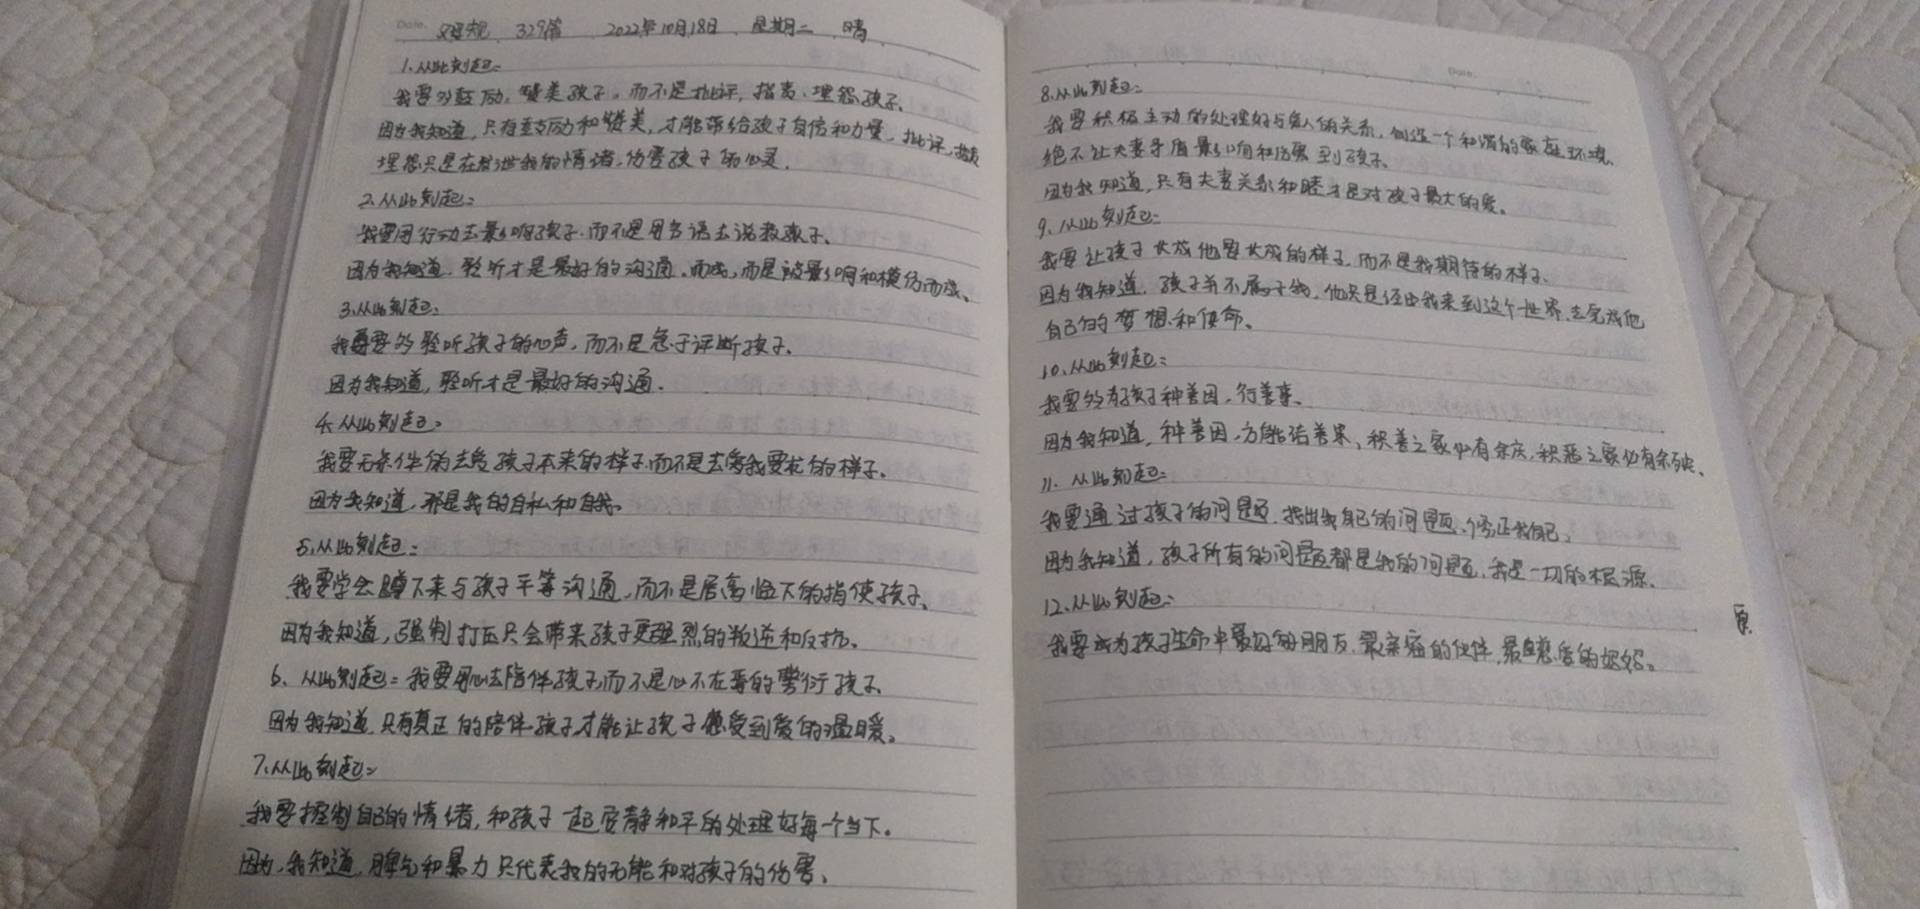 Date. 父母规 329篇 2022年10月18日 星期二 晴
1.从此刻起:
我要多鼓励,赞美孩子,而不是批评,指责、埋怨孩子。
因为我知道,只有鼓励和赞美,才能带给孩子自信和力量,批评、指责
埋怨只是在发泄我的情绪,伤害孩子的心灵.
2.从此刻起:
我要用行动去影响孩子.而不是用言语去说教孩子、
因为我知道.聆听才是最好的沟通.而成,而是被影响和模仿而成、
3.从此刻起:
我要多聆听孩子的心声,而不是急于评断孩子.
因为我知道,聆听才是最好的沟通.
4.从此刻起:
我要无条件的去爱孩子本来的样子而不是去爱我要求的样子.
因为我知道,那是我的自私和自我。
5.从此刻起:
我要学会蹲下来与孩子平等沟通,而不是居高临下的指使孩子、
因为我知道,强制打压只会带来孩子更强烈的叛逆和反抗。
6、从此刻起:我要用心去陪伴孩子,而不是心不在焉的敷衍孩子、
因为我知道.只有真正的陪伴孩子才能让孩子感受到爱的温暖。
7.从此刻起:
我要控制自己的情绪,和孩子一起安静和平的处理好每一个当下。
因为,我知道,脾气和暴力只代表我的无能和对孩子的伤害、
Date.
8.从此刻起:
我要积极主动的处理好与家人的关系,创造一个和谐的家庭环境.
绝不让夫妻矛盾影响和伤害到孩子.
因为我知道,只有夫妻关系和睦才是对孩子最大的爱。
9.从此刻起:
我要让孩子长成他要长成的样子,而不是我期待的样子.
因为我知道.孩子并不属于我,他只是经由我来到这个世界.去完成他
自己的梦想和使命。
10.从此刻起:
我要多为孩子种善因、行善事、
因为我知道,种善因,方能结善果,积善之家必有余庆,积恶之家必有余殃、
11.从此刻起:
我要通过孩子的问题.找出我自己的问题、修正我自己、
因为我知道,孩子所有的问题都是我的问题.我是一切的根源.
12.从此刻起:
我要成为孩子生命中最好的朋友.最亲密的伙伴,最慈爱的妈妈。